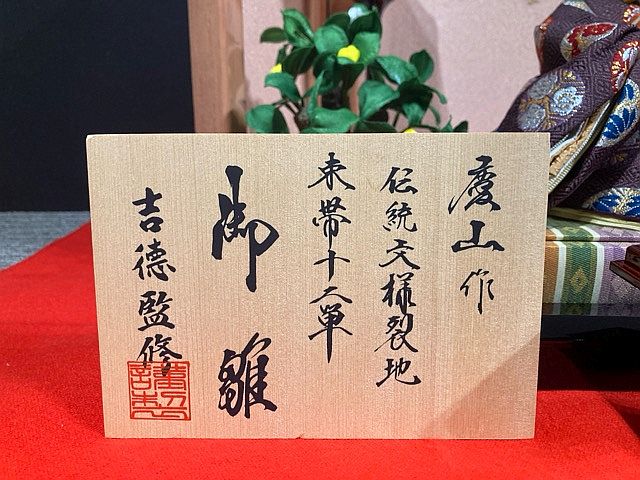 慶山作
伝統文様裂地
束帯十二単
御雛
吉德監修